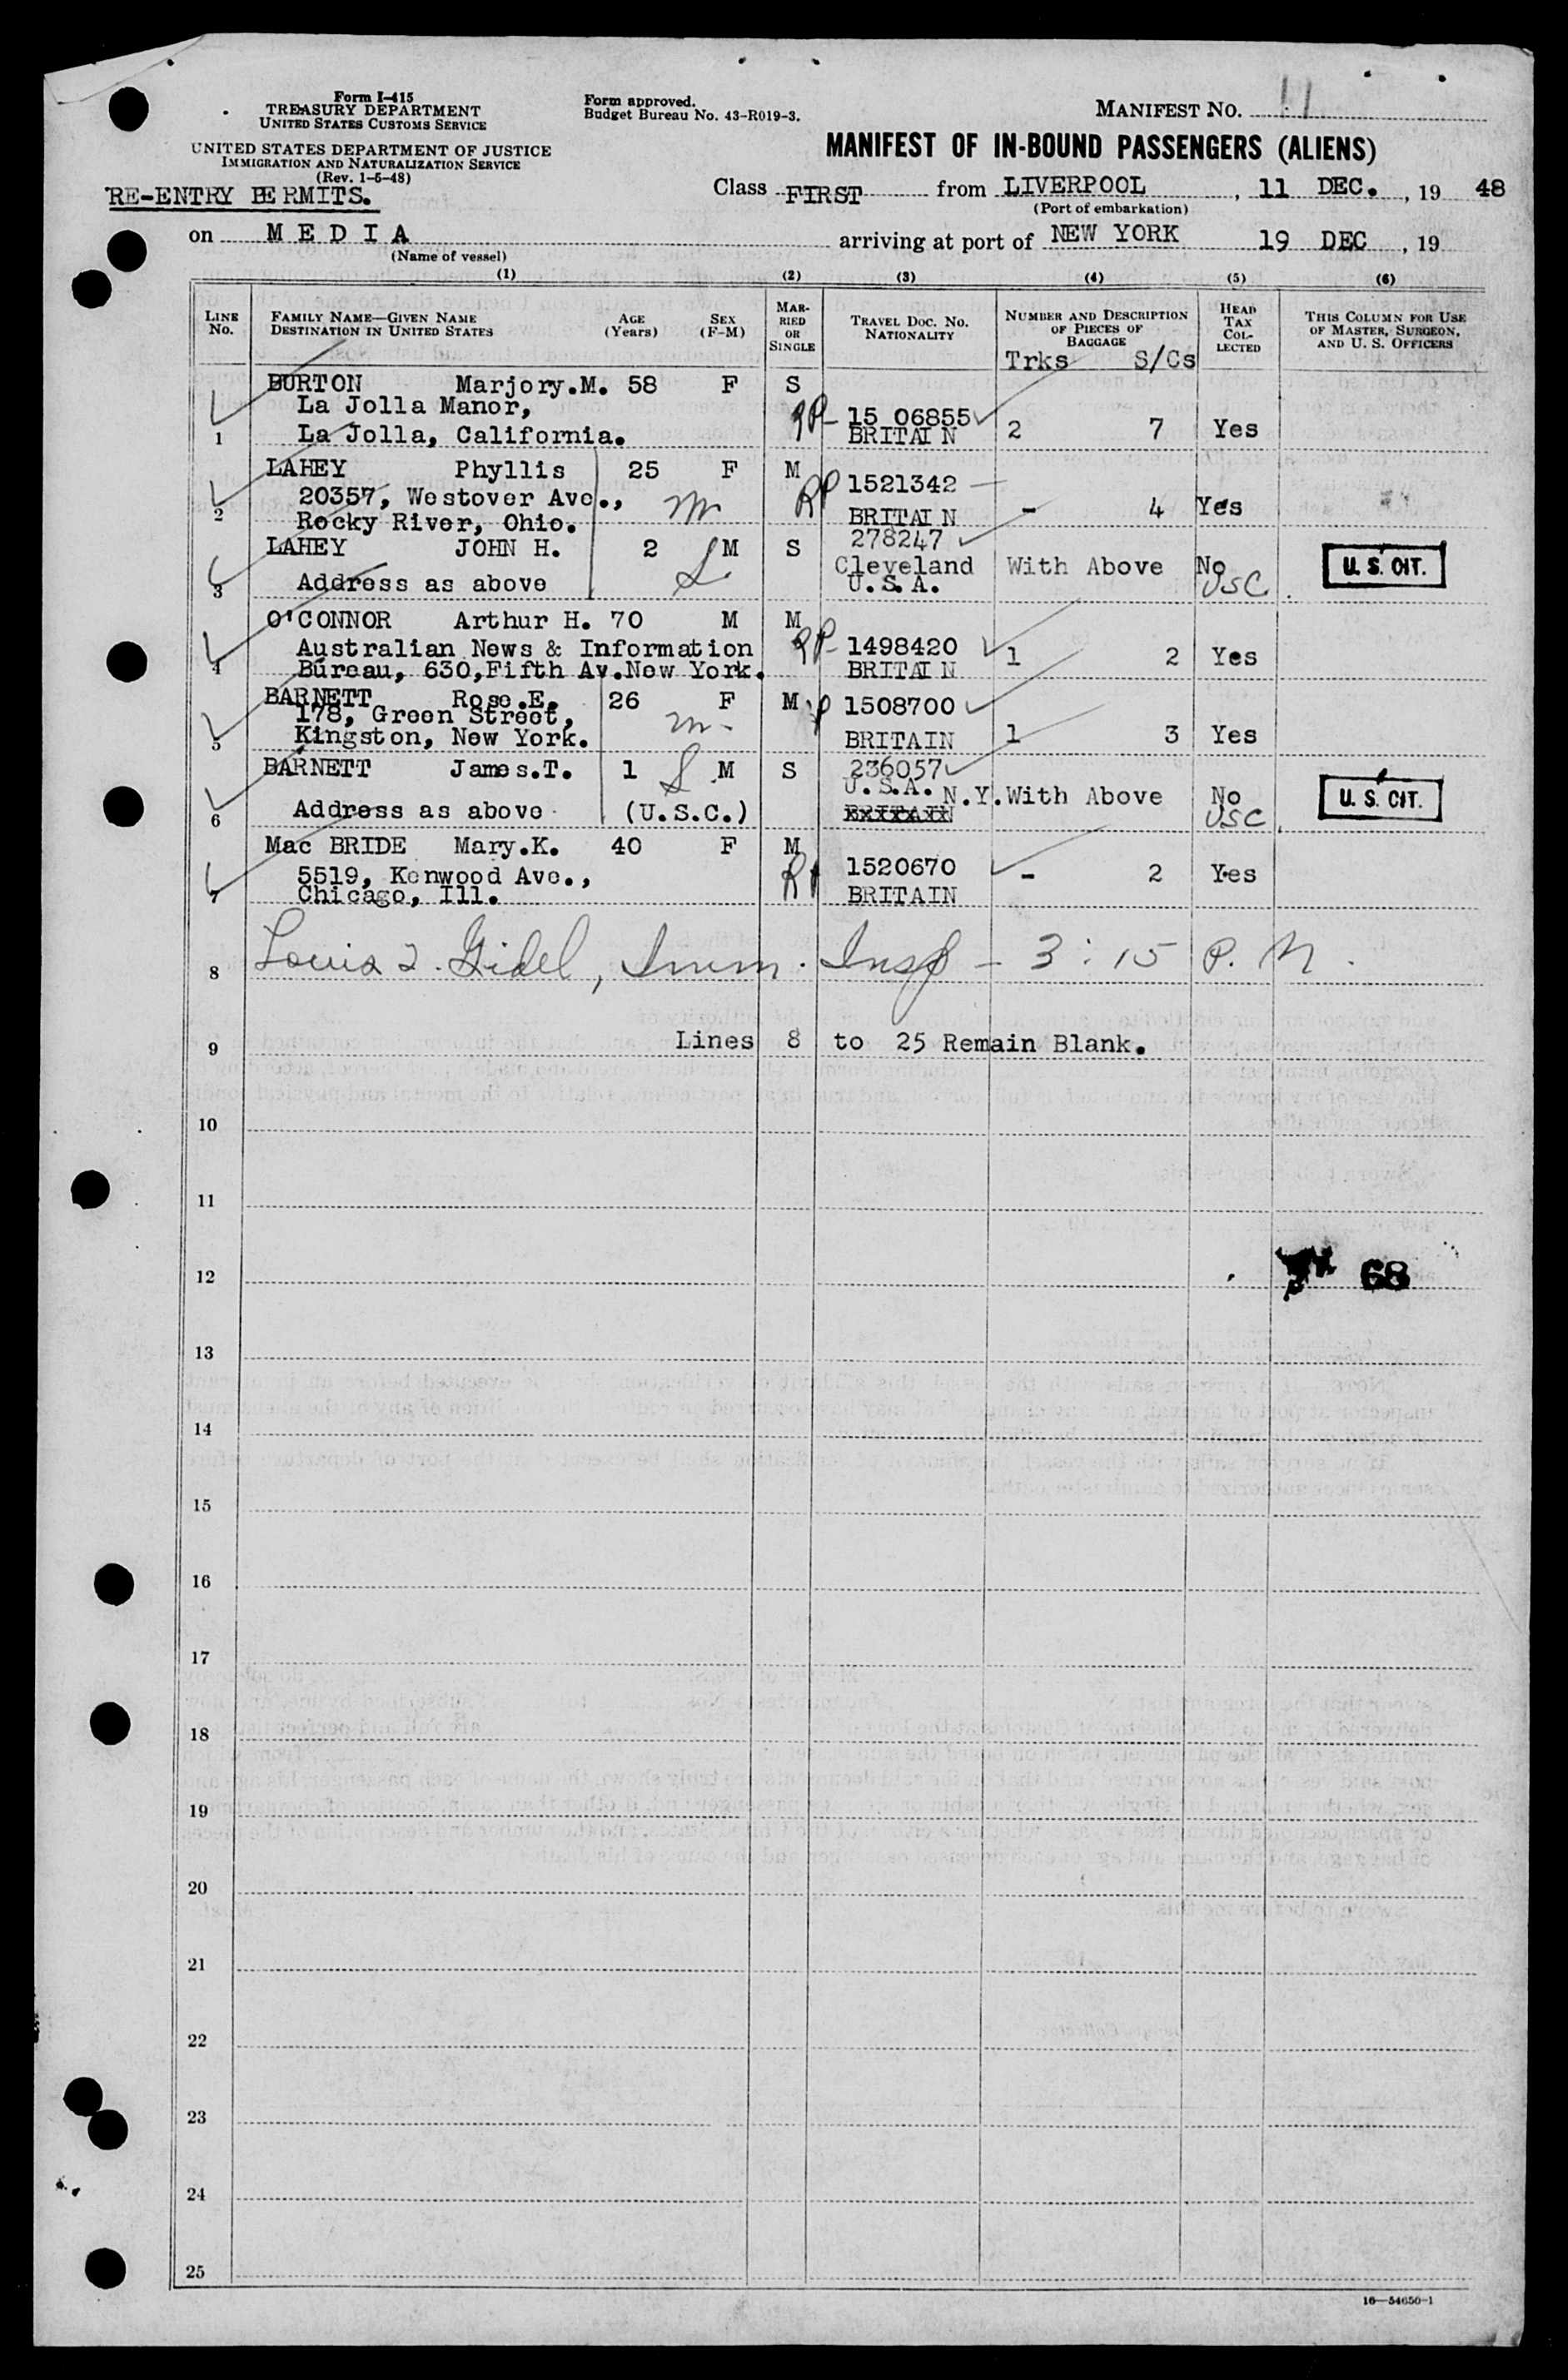 Form I-415
TREASURY DEPARTMENT
UNITED STATES CUSTOMS SERVICE
UNITED STATES DEPARTMENT OF JUSTICE
IMMIGRATION AND NATURALIZATION SERVICE
(Rev. 1-5-48)
Form approved.
Budget Bureau No. 43-R019-3.
MANIFEST NO. 11
MANIFEST OF IN-BOUND PASSENGERS (ALIENS)
RE-ENTRY PERMITS.
Class FIRST from LIVERPOOL, 11 DEC., 19 48
(Port of embarkation)
on MEDIA arriving at port of NEW YORK 19 DEC, 19
(Name of vessel)
(1) (2) (3) (4) (5) (6)
LINE No. FAMILY NAME—GIVEN NAME DESTINATION IN UNITED STATES AGE (Years) SEX (F-M) MARRIED OR SINGLE TRAVEL DOC. NO. NATIONALITY NUMBER AND DESCRIPTION OF PIECES OF BAGGAGE HEAD TAX COLLECTED THIS COLUMN FOR USE OF MASTER, SURGEON, AND U. S. OFFICERS
Trks S/Cs
BURTON Marjory.M. 58 F S
La Jolla Manor, RP- 15 06855
1 La Jolla, California. BRITAIN 2 7 Yes
LAHEY Phyllis 25 F M
20357, Westover Ave., m RP 1521342
2 Rocky River, Ohio. BRITAIN - 4 Yes
LAHEY JOHN H. 2 M S 278247
S Cleveland With Above No U. S. CIT.
3 Address as above U.S.A. USC
O'CONNOR Arthur H. 70 M M
Australian News & Information RP- 1498420
4 Bureau, 630,Fifth Av.New York. BRITAIN 1 2 Yes
BARNETT Rose.E. 26 F M 1508700
178, Green Street, m
5 Kingston, New York. BRITAIN 1 3 Yes
BARNETT James.T. 1 S M S 236057
U.S.A. N.Y. With Above No U. S. CIT.
6 Address as above (U.S.C.) BRITAIN USC
Mac BRIDE Mary.K. 40 F M
5519, Kenwood Ave., RP 1520670 - 2 Yes
7 Chicago, Ill. BRITAIN
8 Louis Gidel, Imm. Insp - 3:15 P. M.
9 Lines 8 to 25 Remain Blank.
10
11
12 68
13
14
15
16
17
18
19
20
21
22
23
24
25
16—54650-1